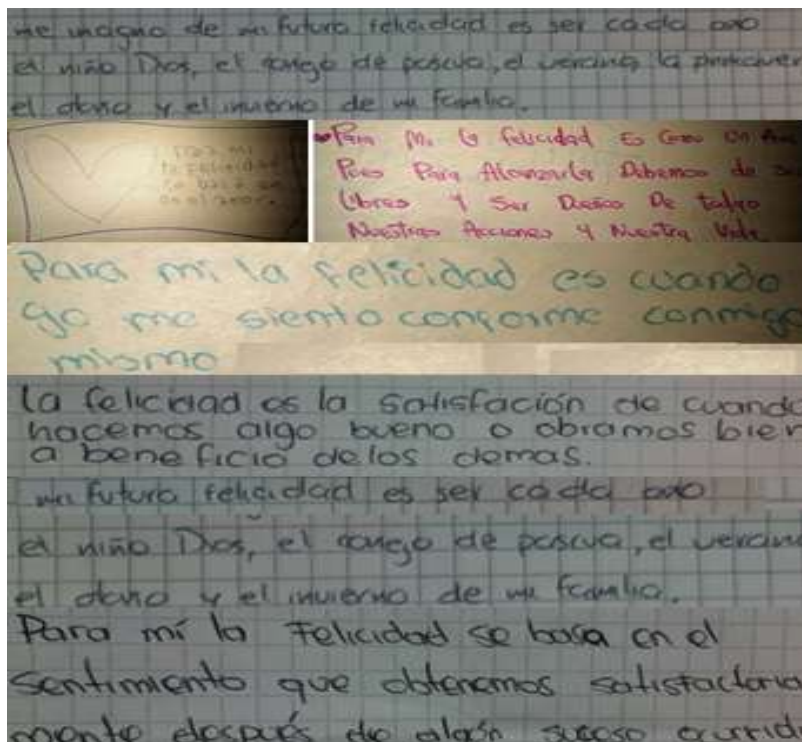 me imagino de mi futura felicidad es ser cada año
el niño Dios, el conejo de pascua, el verano, la primaver
el otoño y el invierno de mi familia.
Para mi
la felicidad
se basa en
en el amor.
Para Mi la felicidad Es Como Un
Pues Para Alcanzarla Debemos de
libres Y Ser Dueños De
Nuestras Acciones Y Nuestra Vida
Para mi la felicidad es cuando
yo me siento conforme conmigo
mismo
la felicidad es la satisfacción de cuando
hacemos algo bueno o obramos bien
a beneficio delos demas.
mi futura felicidad es ser cada año
el niño Dios, el conejo de pascua, el verano
el otoño y el invierno de mi familia.
Para mí la Felicidad se basa en el
Sentimiento que obtenemos satisfactoria
mente después de algún suceso ocurrid